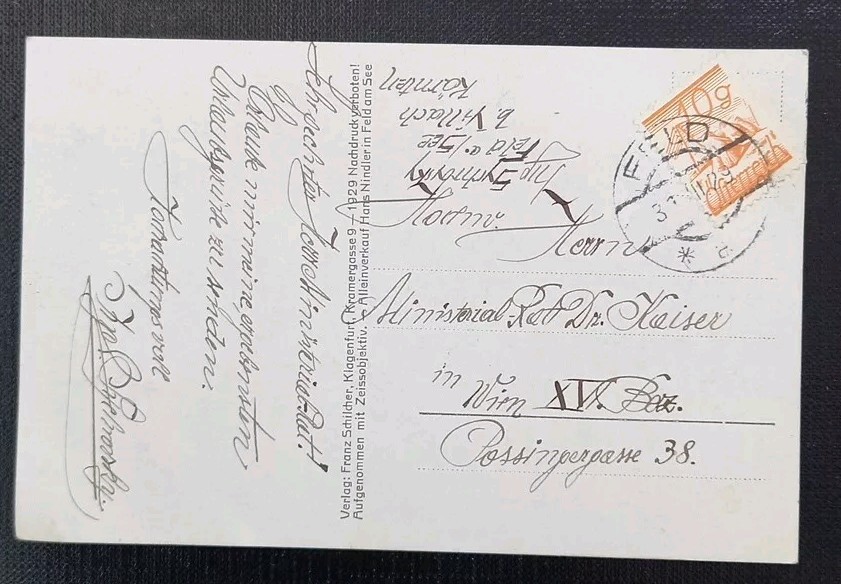 Sehr geehrter Herr Ministerial-Rat!
Erlaube mir meine ergebensten
Urlaubsgrüße zu senden.
Hochachtungsvoll
Verlag: Franz Schilcher, Klagenfurt, Kramergasse 9 — 1929 Nachdruck verboten!
Aufgenommen mit Zeissobjektiv. — Alleinverkauf Hans Nindler in Feld am See
Feld a. See
b. Villach
Kärnten
10g
Österreich
FELD
Herrn
Ministerial-Rat Dr. Kaiser
in Wien XVI. Bez.
Possingergasse 38.